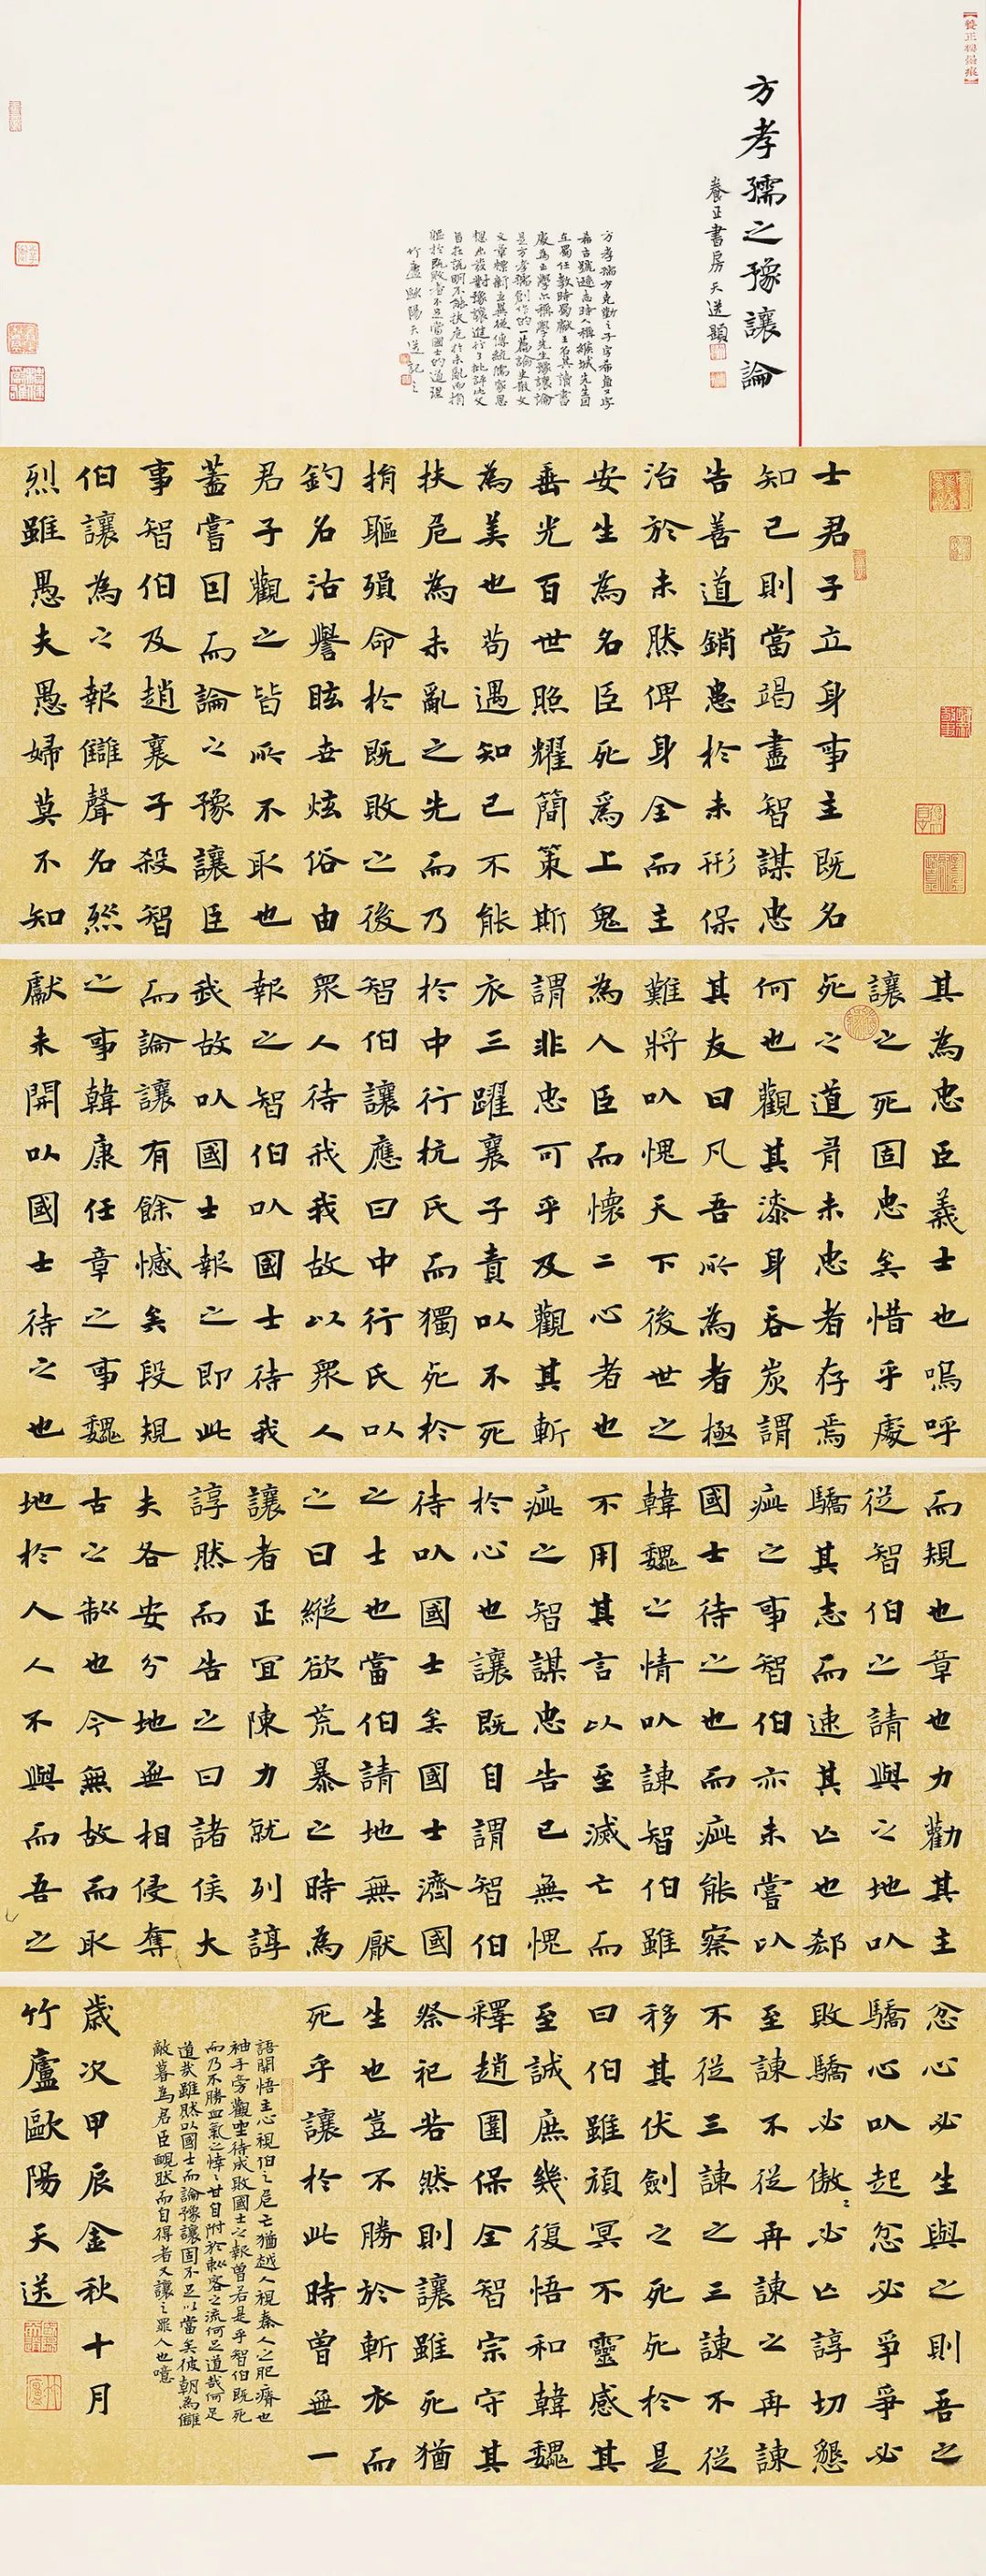 方孝孺之豫讓論
養正書房天送題
方孝孺方克勤之子字希直又字
希古號遜志時人稱緱城先生因
在蜀任教時蜀獻王名其讀書
處為正學亦稱學先生豫讓論
是方孝孺創作的一篇論史散文
文章標新立異從傳統儒家思
想出發對豫讓進行了批評此文
旨在説明不能扶危於未亂而捐
軀於既敗者不足當國士的道理
竹廬歐陽天送記之
士君子立身事主既名
知己則當竭盡智謀忠
告善道銷患於未形保
治於未然俾身全而主
安生為名臣死爲上鬼
垂光百世照耀簡策斯
為美也苟遇知己不能
扶危為未亂之先而乃
捐軀殞命於既敗之後
釣名沽譽眩世炫俗由
君子觀之皆所不取也
蓋嘗因而論之豫讓臣
事智伯及趙襄子殺智
伯讓為之報讎聲名烈
烈雖愚夫愚婦莫不知
其為忠臣義士也嗚呼
讓之死固忠矣惜乎處
死之道有未忠者存焉
何也觀其漆身吞炭謂
其友曰凡吾所為者極
難將以愧天下後世之
為人臣而懷二心者也
謂非忠可乎及觀其斬
衣三躍襄子責以不死
於中行杭氏而獨死於
智伯讓應曰中行氏以
眾人待我我故以眾人
報之智伯以國士待我
我故以國士報之即此
而論讓有餘憾矣段規
之事韓康任章之事魏
獻未聞以國士待之也
而規也章也力勸其主
從智伯之請與之地以
驕其志而速其亡也郄
疵之事智伯亦未嘗以
國士待之也而疵能察
韓魏之情以諫智伯雖
不用其言以至滅亡而
疵之智謀忠告已無愧
於心也讓既自謂智伯
待以國士矣國士濟國
之士也當伯請地無厭
之日縱欲荒暴之時為
讓者正宜陳力就列諄
諄然而告之曰諸侯大
夫各安分地無相侵奪
古之制也今無故而取
地於人人不與而吾之
忿心必生與之則吾之
驕心以起忿必爭爭必
敗驕必傲〻必亡諄切懇
至諫不從再諫之再諫
不從三諫之三諫不從
移其伏劍之死死於是
曰伯雖頑冥不靈感其
至誠庶幾復悟和韓魏
釋趙圍保全智宗守其
祭祀若然則讓雖死猶
生也豈不勝於斬衣而
死乎讓於此時曾無一
語開悟主心視伯之危亡猶越人視秦人之肥瘠也
袖手旁觀坐待成敗國士之報曾若是乎智伯既死
而乃不勝血氣之悻〻甘自附於刺客之流何足道哉何足
道哉雖然以國士而論豫讓固不足以當矣彼朝為讎
敵暮為君臣靦然而自得者又讓之罪人也噫
歲次甲辰金秋十月
竹廬歐陽天送